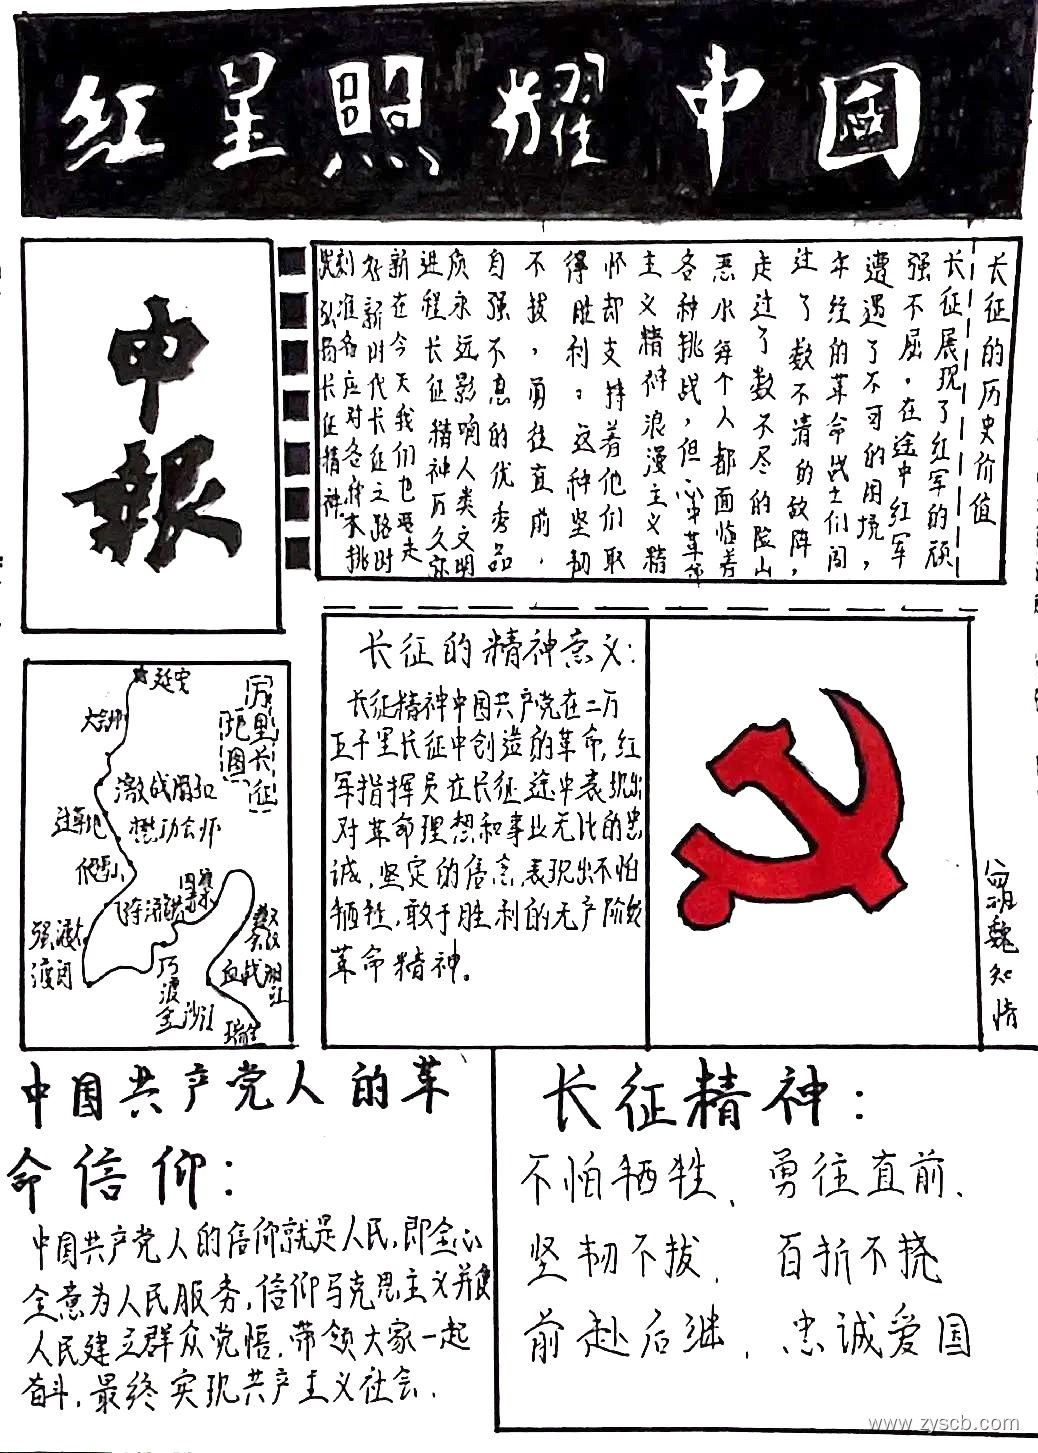 红星照耀中国
申報
长征的历史价值
长征展现了红军的顽
强不屈，在途中红军
遭遇了不可的困境，
年经的革命战士们闯
过了数不清的敌阵，
走过了数不尽的险山
恶水每个人都面临着
各种挑战，但革命
主义精神浪漫主义精
怀却支持着他们取
得胜利。这种坚韧
不拔，勇往直前，
自强不息的优秀品
质永远影响人类文明
进程长征精神历久弥
新在今天我们也要走
好新时代长征之路时
刻准备应对各种挑
弘扬长征精神
万里长征
图
延安
激战腊子口
过草地
懋功会师
爬雪山
巧渡
金沙江
血战湘江
瑞金
长征的精神意义：
长征精神中国共产党在二万
五千里长征中创造的革命，红
军指挥员在长征途中表现出
对革命理想和事业无比的忠
诚，坚定的信念，表现出不怕
牺牲，敢于胜利的无产阶级
革命精神。
魏知情
中国共产党人的革
命信仰：
中国共产党人的信仰就是人民，即全心
全意为人民服务，信仰马克思主义并使
人民建立群众党悟，带领大家一起
奋斗，最终实现共产主义社会．
长征精神：
不怕牺牲、勇往直前、
坚韧不拔、百折不挠
前赴后继、忠诚爱国
www.zyscb.com